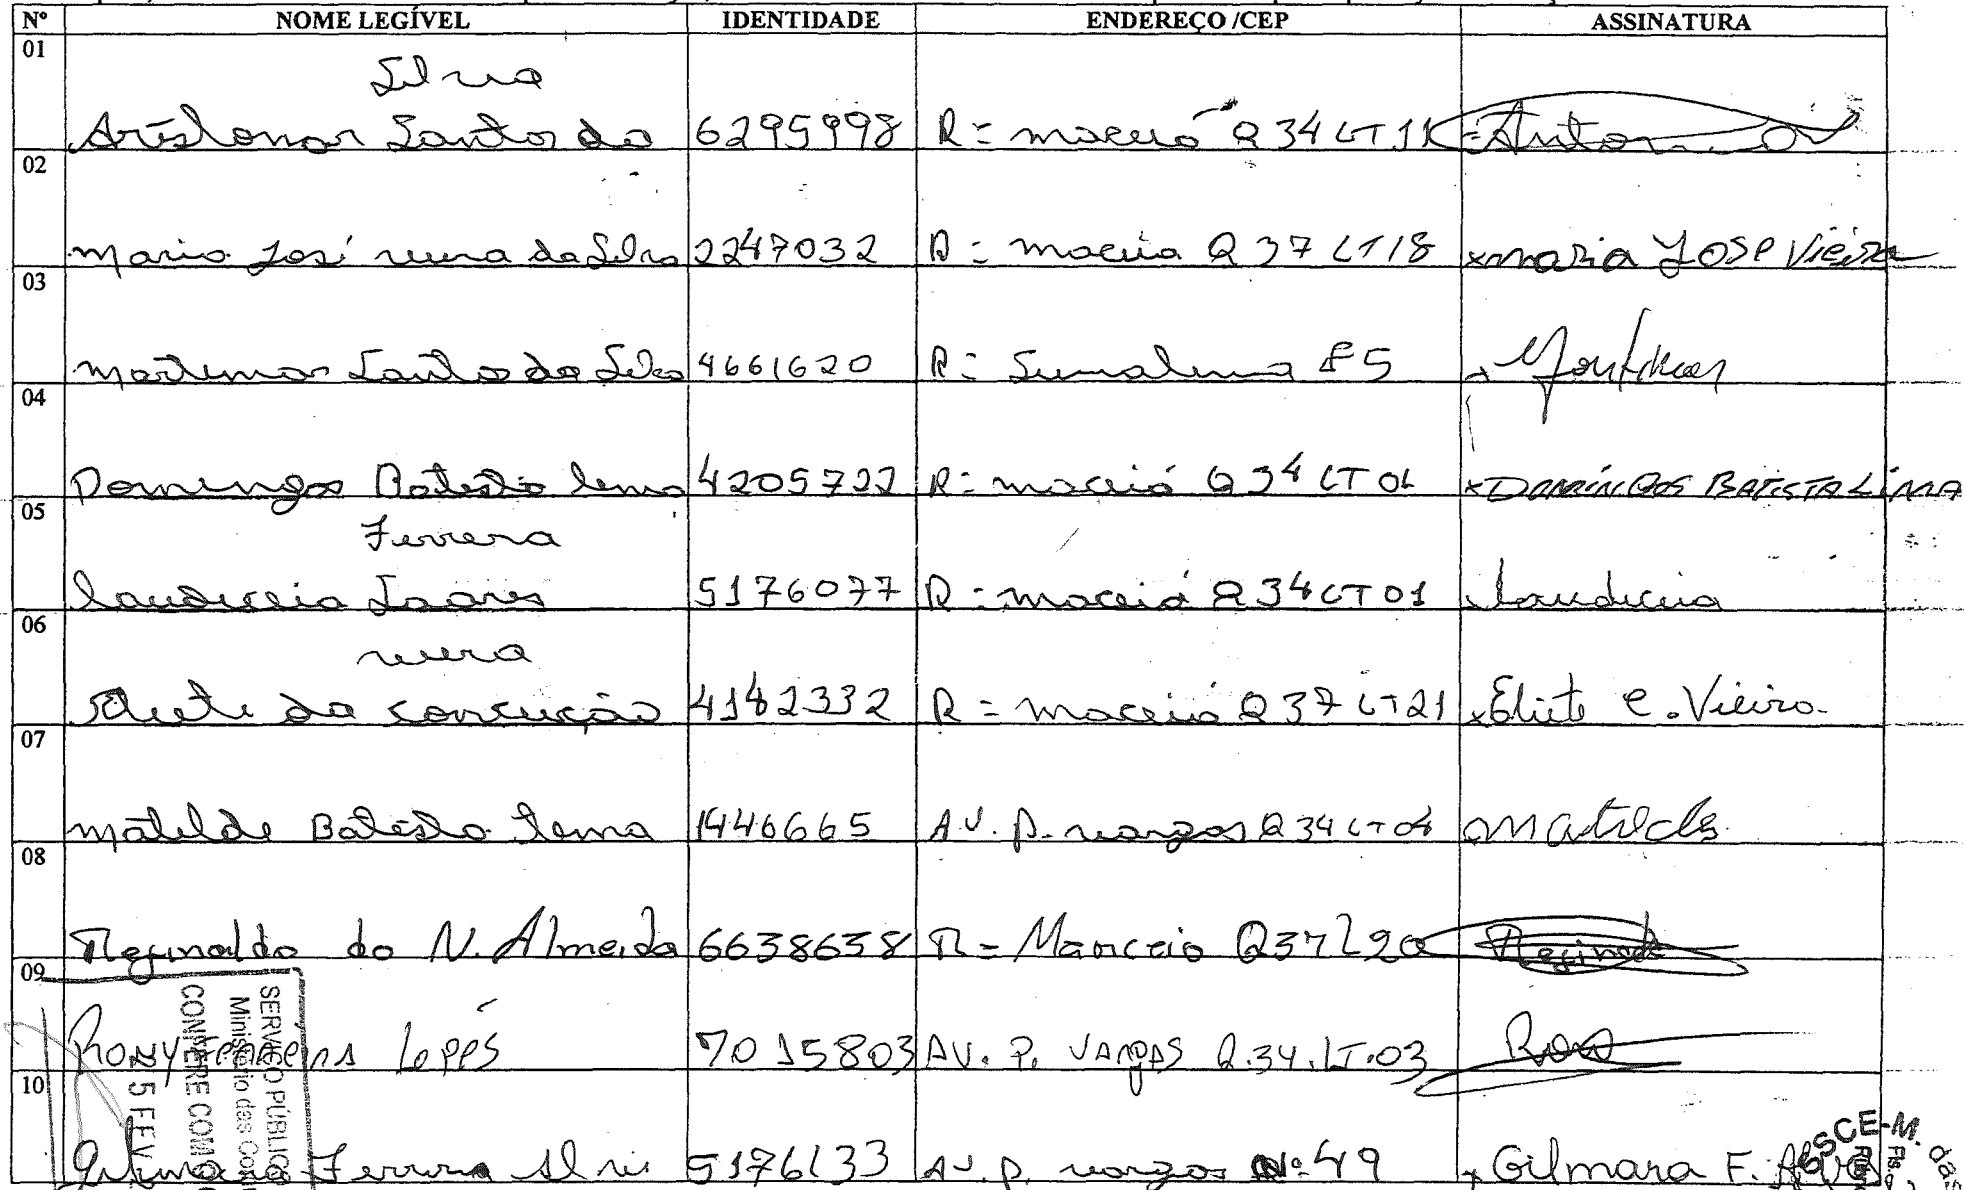 Nº NOME LEGÍVEL IDENTIDADE ENDEREÇO /CEP ASSINATURA
01
Silva
Santos da 6295998 R= maceió Q 34 LT 11
02
Maria José vieira da Silva 2247032 R= maceió Q 37 LT 18 x maria José Vieira
03
Santos da Silva 4661620 R= 85
04
Domingos Batista lima 4205722 R= maceió Q 34 LT 01 x DOMINGOS BATISTA LIMA
05
Ferreira
laudiceia Soares 5176077 R= maceió Q 34 LT 01 laudiceia
06
vieira
Eliete da conceição 4142332 R= maceió Q 37 LT 21 x Eliete C. Vieira
07
matilde Batista lima 1446665 AV. P. vargas Q 34 LT 04 matilde
08
Reginaldo do N. Almeida 6638638 R= Marceio Q37 L20 Reginaldo
09
Rony Lopes 7015803 AV. P. VARGAS Q.34.LT.03
10
Gilmara Ferreira Alves 5176133 AV. P. vargas Nº 49 x Gilmara F. Alves
SERVIÇO PÚBLICO
Ministério das Co
CONFERE COM O
25 FEV
SCE-M. das
Fls.